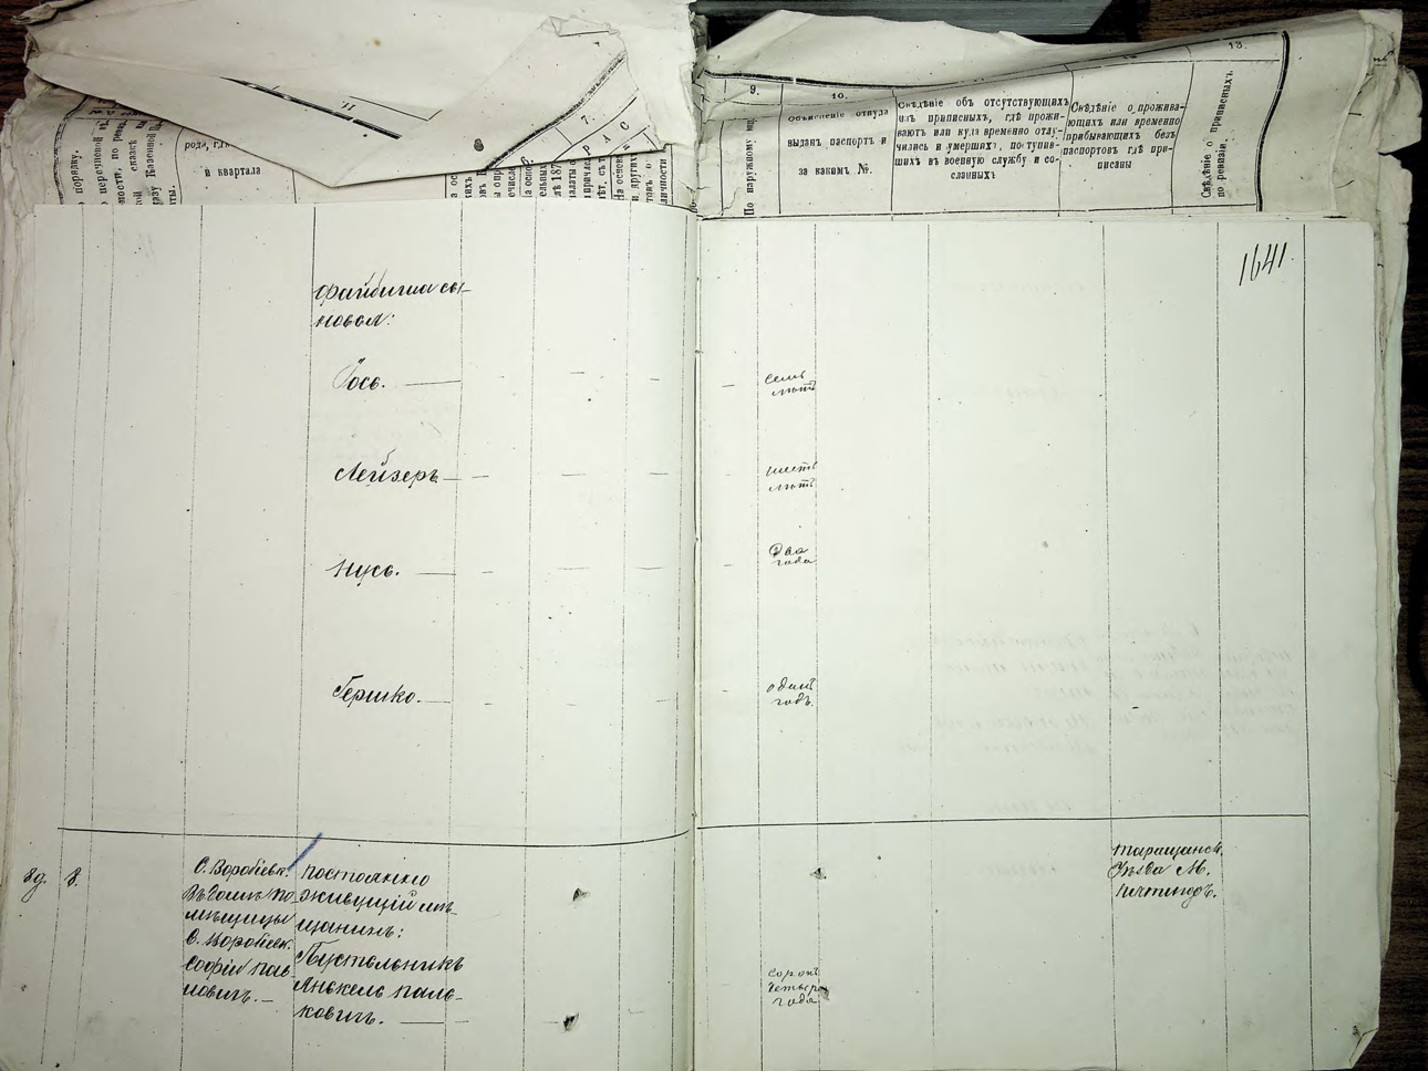 порядку.
рода, гдѣ
и квартала
6.
7.
Р А С
9.
По наружному
10.
Объясненіе откуда
выданъ паспортъ и
за какимъ №.
Свѣдѣніе объ отсутствующихъ
изъ приписныхъ, гдѣ прожи-
ваютъ или куда временно отлу-
чились и умершихъ, поступив-
шихъ въ военную службу и со-
сланныхъ
Свѣдѣніе о прожива-
ющихъ или временно
прибывающихъ безъ
паспортовъ гдѣ при-
писаны
13.
Свѣдѣніе о приписныхъ
по ревизіи.
1641.
Файбиша сы-
новья:
Іось.
семь
лѣтъ
Лейзеръ
шесть
лѣтъ
Нусь.
два
года
Гершко.
одинъ
годъ.
8.
С. Воробіевк.
Въ домѣ по-
мѣщицы
С. Воробіевк.
Софіи Пав-
ловичъ.
постоянно
живущій мѣ-
щанинъ:
Пустельникъ
Янкель Паль-
ковичъ.
сорокъ
четыре
года
Таращанск.
Уѣзда М.
Пятигоръ.